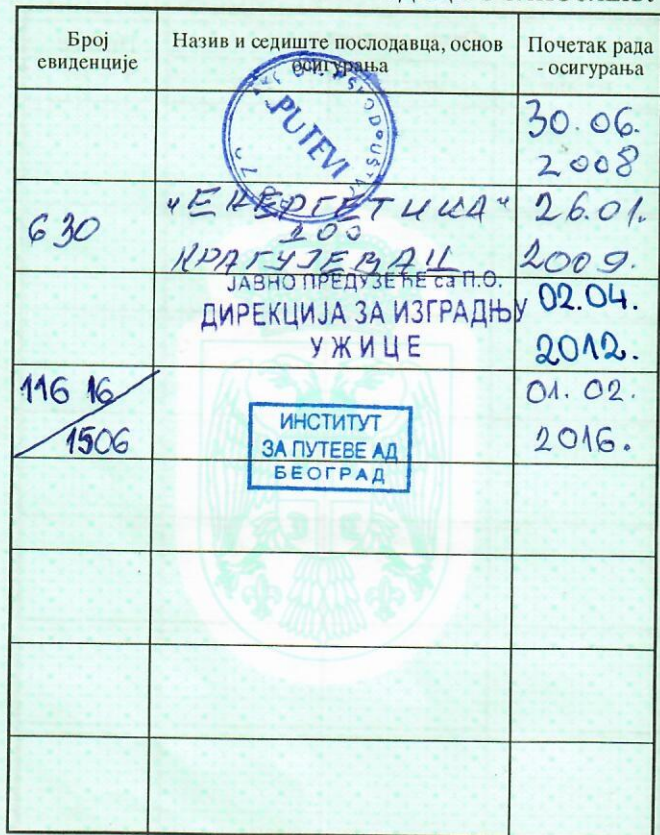 Број
евиденције
Назив и седиште послодавца, основ
осигурања
Почетак рада
- осигурања
PUTEVI
30.06.
2008
630
"ЕНЕРГЕТИКА"
ДОО
КРАГУЈЕВАЦ
26.01.
2009.
ЈАВНО ПРЕДУЗЕЋЕ са П.О.
ДИРЕКЦИЈА ЗА ИЗГРАДЊУ
УЖИЦЕ
02.04.
2012.
116 16/
1506
ИНСТИТУТ
ЗА ПУТЕВЕ АД
БЕОГРАД
01.02.
2016.